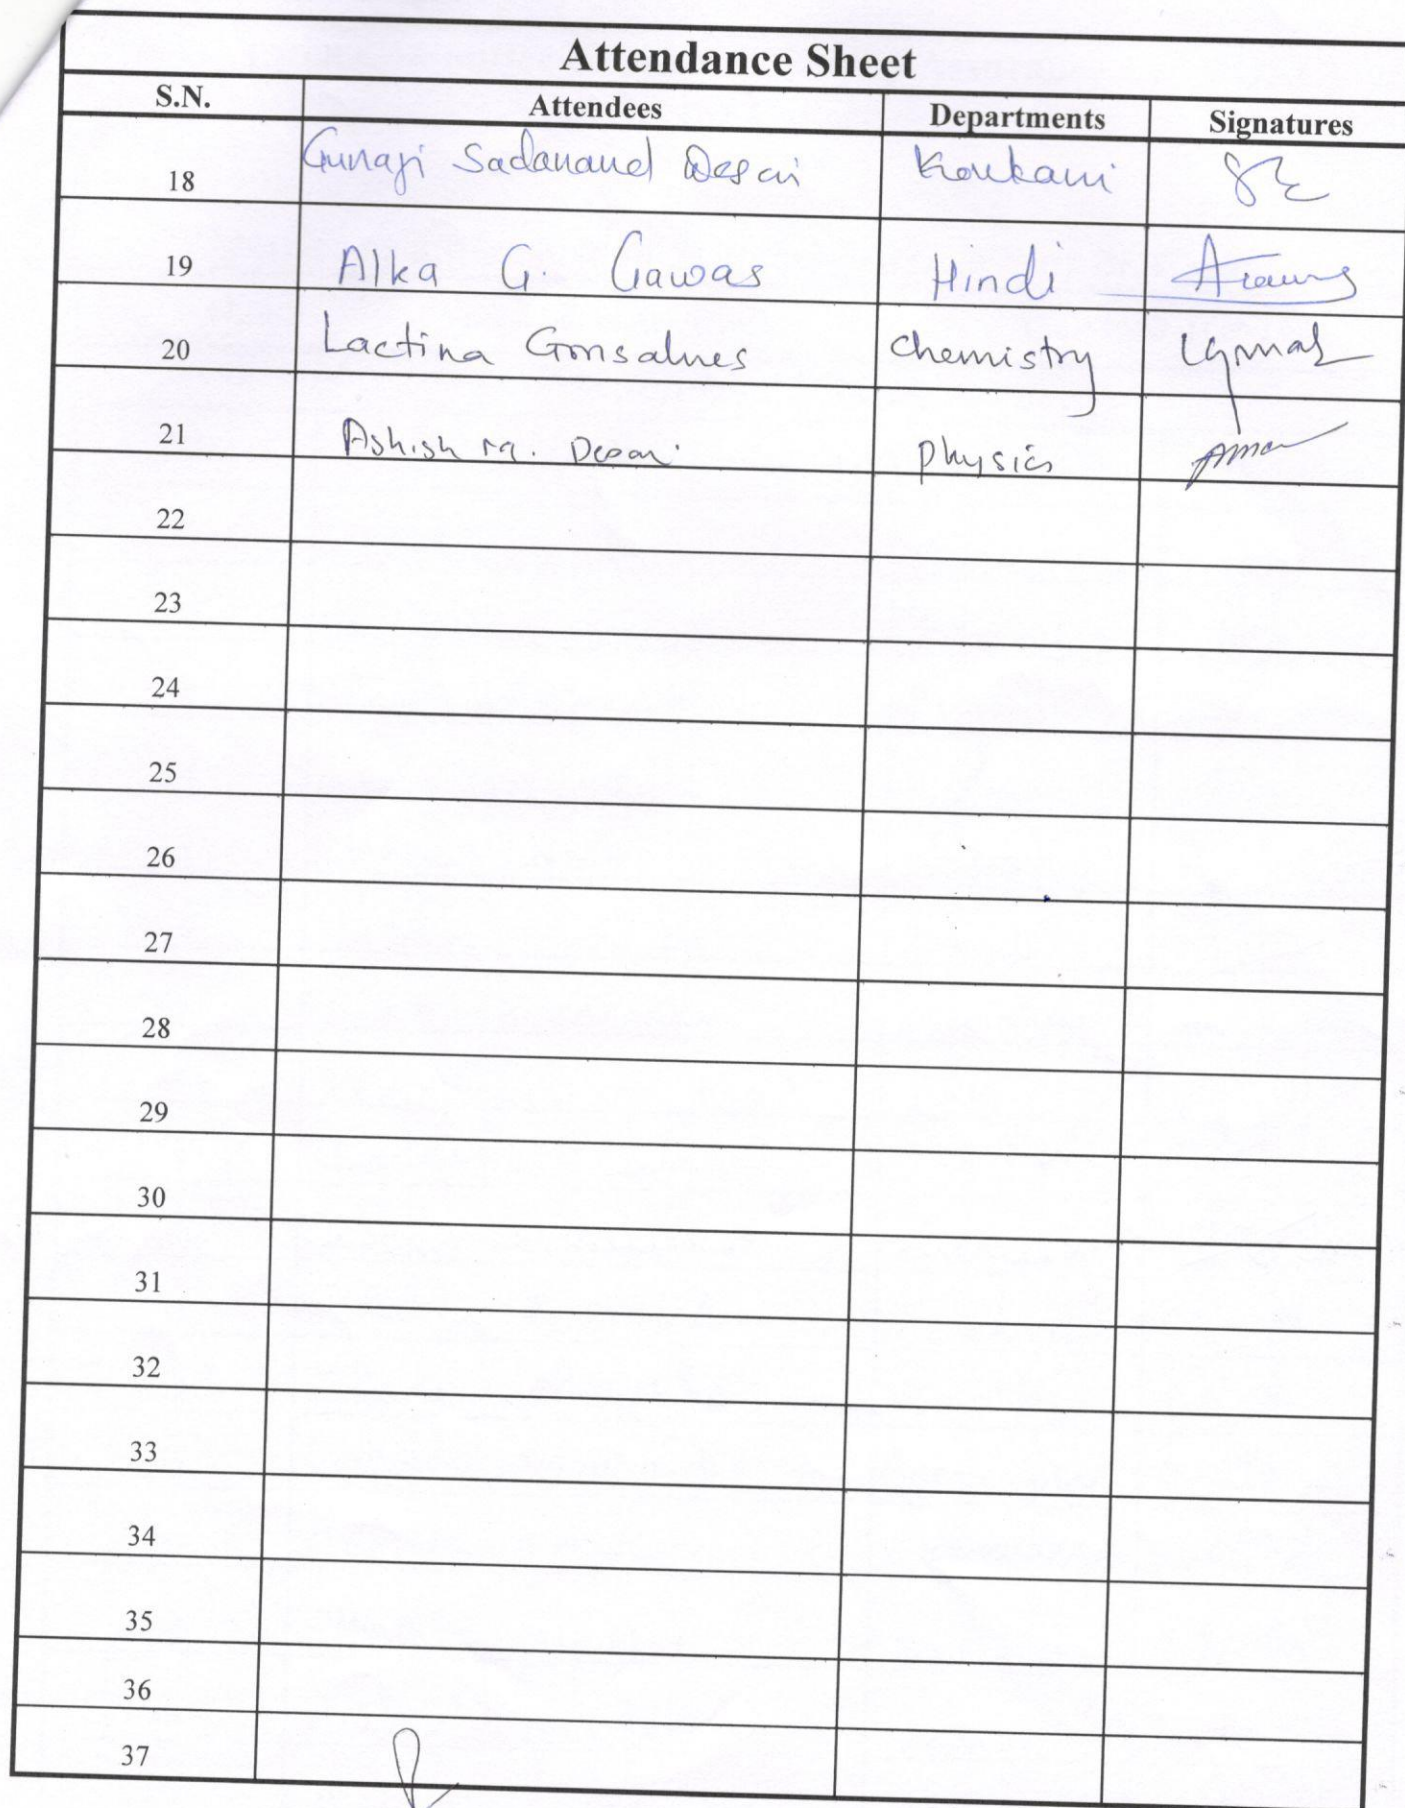 Attendance Sheet
S.N. Attendees Departments Signatures
18 Gunaji Sadanand Desai Konkani
19 Alka G. Gawas Hindi
20 Lactina Gonsalves Chemistry
21 Ashish M. Desai Physics
22
23
24
25
26
27
28
29
30
31
32
33
34
35
36
37